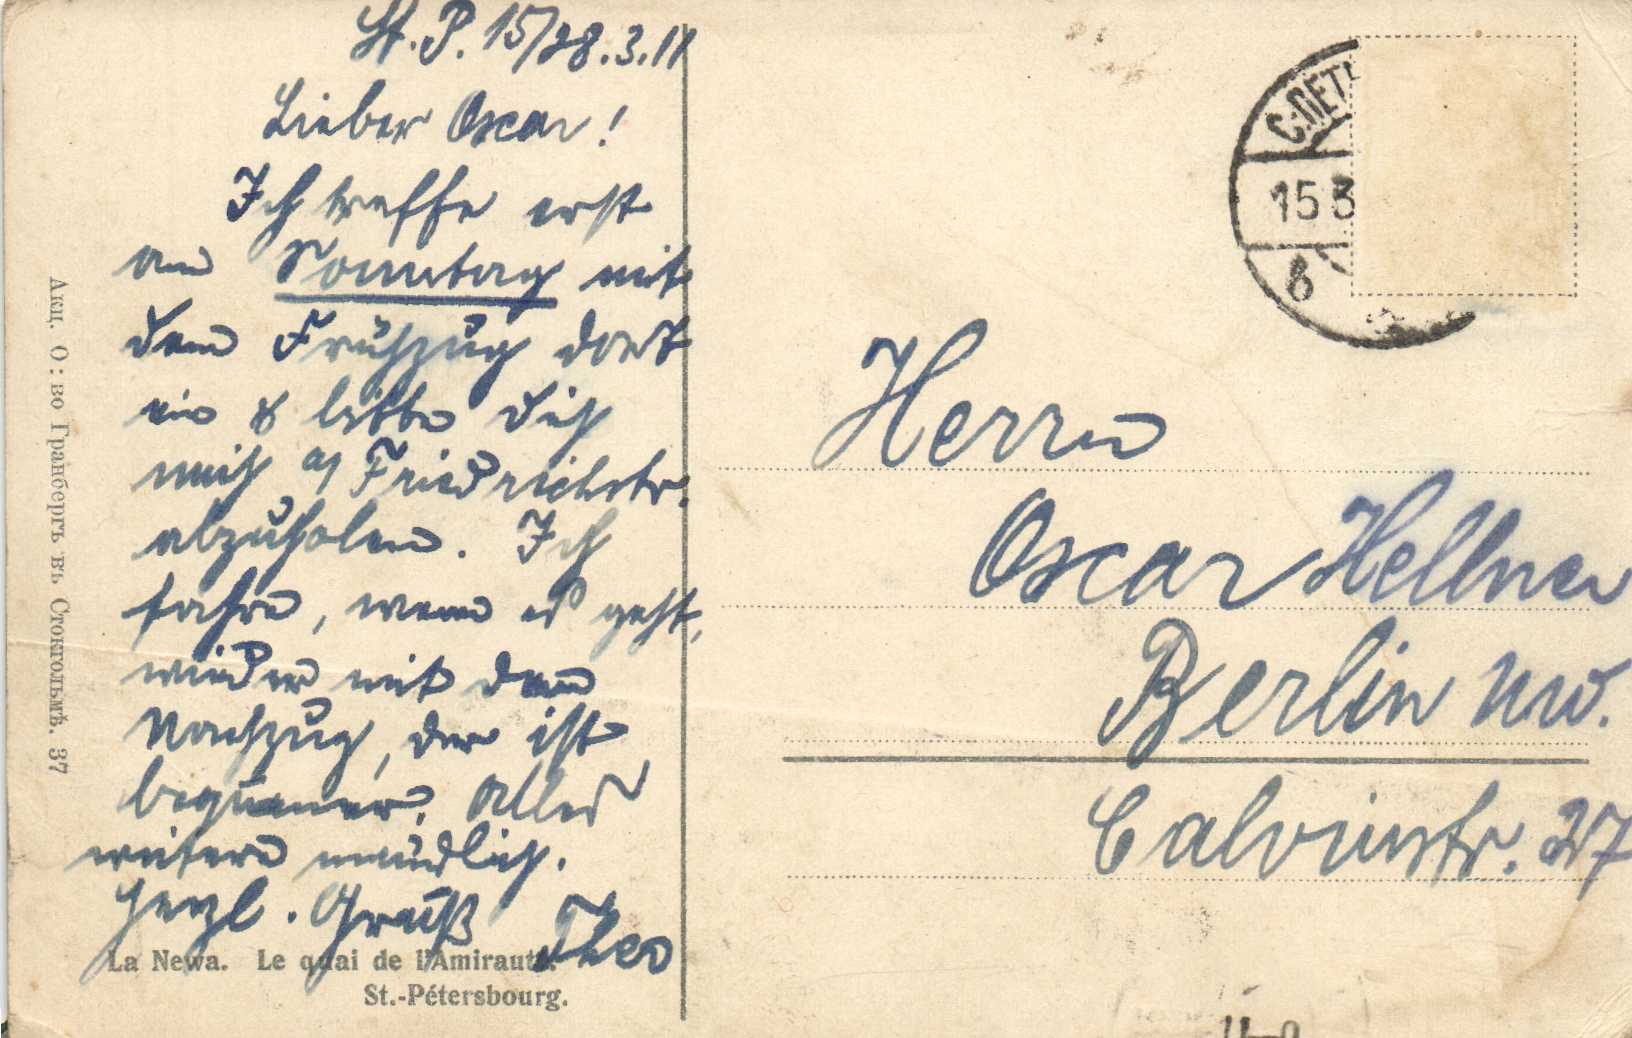 St. P. 15/28.3.11
Lieber Oscar!
Ich treffe erst
am Sonntag mit
dem Frühzug dort
ein & bitte Dich
mich a/ Friedrichstr.
abzuholen. Ich
fahre, wenn es geht,
wieder mit dem
Nachzug, der ist
bequemer. Alles
weitere mündlich.
Herzl. Gruß Theo
La Newa. Le quai de l'Amirauté.
St.-Pétersbourg.
Акц. О: во Гранбергъ въ Стокгольмѣ. 37
С.ПЕТ
15 3
Herrn
Oscar Hellner
Berlin NW.
Calvinstr. 27